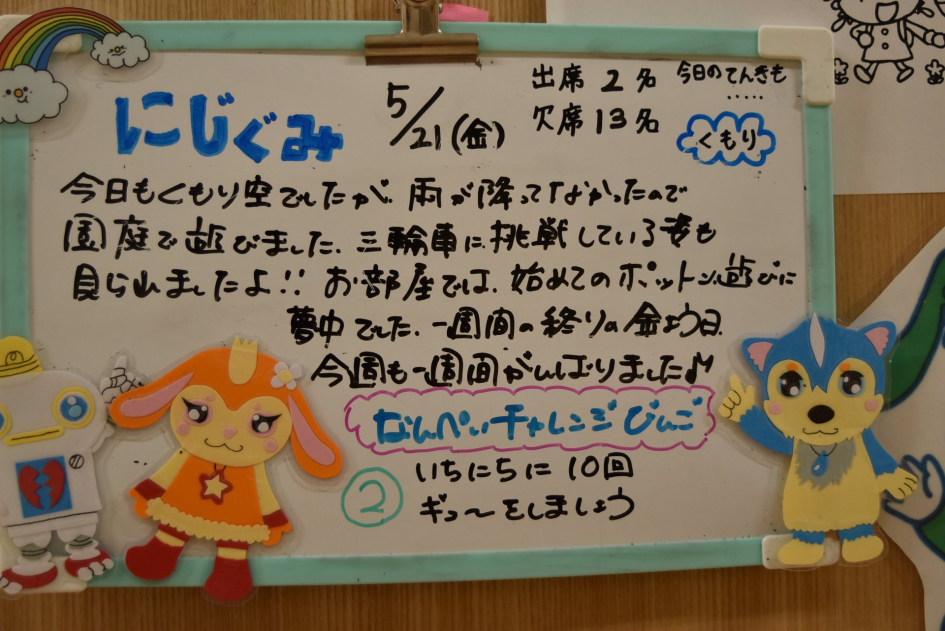 にじぐみ
5/21(金)
出席 2名
欠席 13名
今日のてんきも
.....
くもり
今日もくもり空でしたが、雨が降ってなかったので
園庭で遊びました。三輪車に挑戦している姿も
見られましたよ!! お部屋では、始めてのポットン遊びに
夢中でした。一週間の終りの金よう日
今週も一週間がんばりました♪
なんぺいチャレンジびんご
② いちにちに 10回
ギュ〜をしましょう